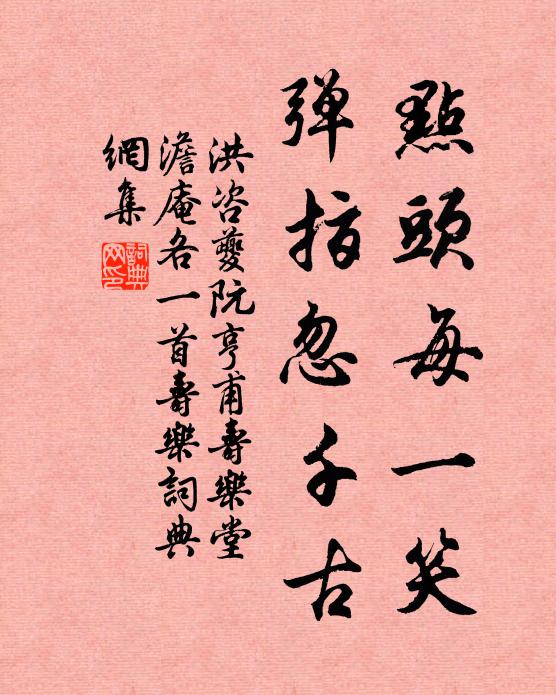 點頭每一笑
弹指忽千古
洪咨夔阮亨甫壽樂堂
澹庵各一首壽樂詞典
網集
詞典
网印